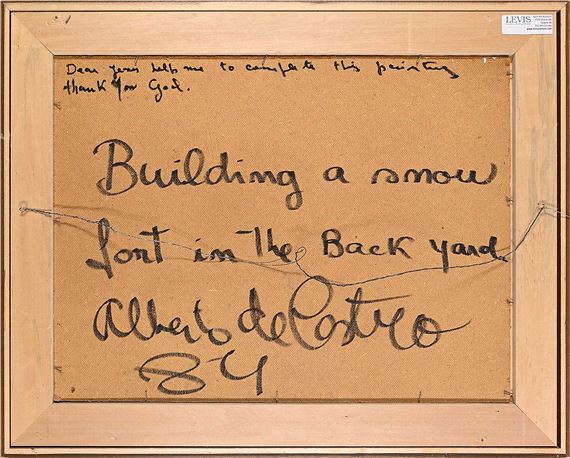 LEVIS
Dear Jesus help me to complete this painting
thank You God.
Building a snow
fort in the Back yard.
Alberto de Castro
84